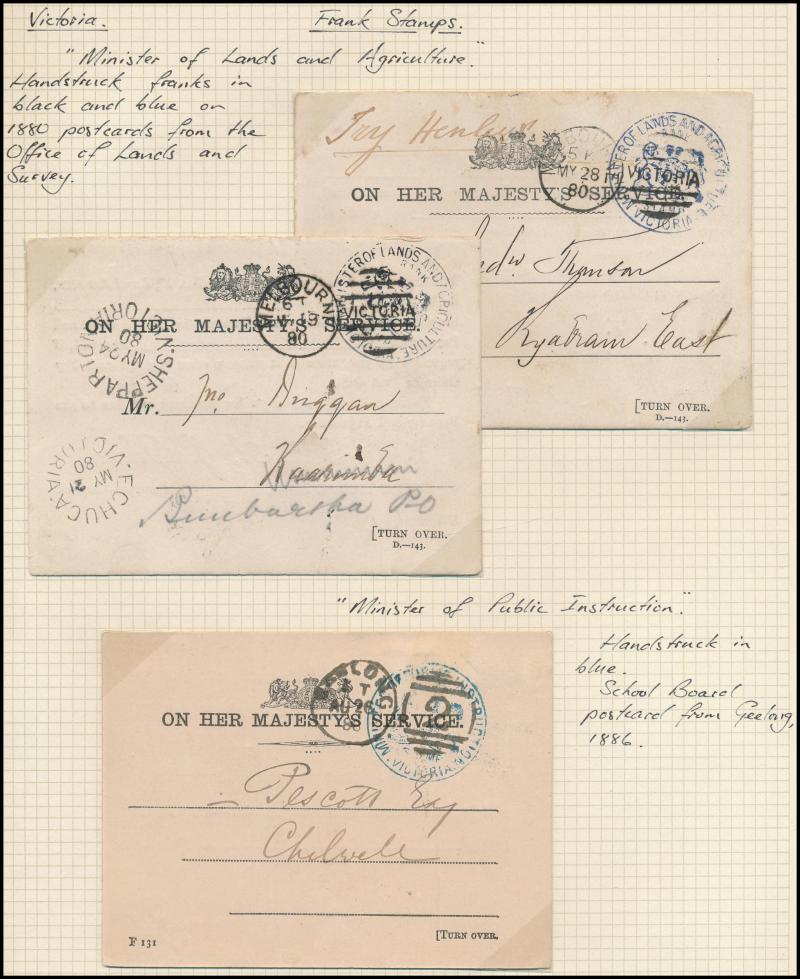 Victoria. Frank Stamps.
"Minister of Lands and Agriculture."
Handstruck franks in
black and blue on
1880 postcards from the
Office of Lands and
Survey.
Try
MY 28
80
VICTORIA
FRANK
STAMP
MINISTER OF LANDS AND AGRICULTURE. VICTORIA.
ON HER MAJESTY'S SERVICE.
Edw Thomson
Kyabram East
[TURN OVER.
D.—143.
MELBOURNE
MY 19
80
VICTORIA
MINISTER OF LANDS AND AGRICULTURE.
FRANK
ON HER MAJESTY'S SERVICE.
SHEPPARTON
VICTORIA
MY 24
80
Mr. Jno Duggan
Kaarimba
Bunbartha P.O
ECHUCA
VICTORIA
MY 21
80
[TURN OVER.
D.—143.
"Minister of Public Instruction."
Handstruck in
blue.
School Board
postcard from Geelong,
1886.
GEELONG
AU 26
86
2
INSTRUCTION. VICTORIA.
ON HER MAJESTY'S SERVICE.
Pescott Esq
Chilwell
F 131
[TURN OVER.